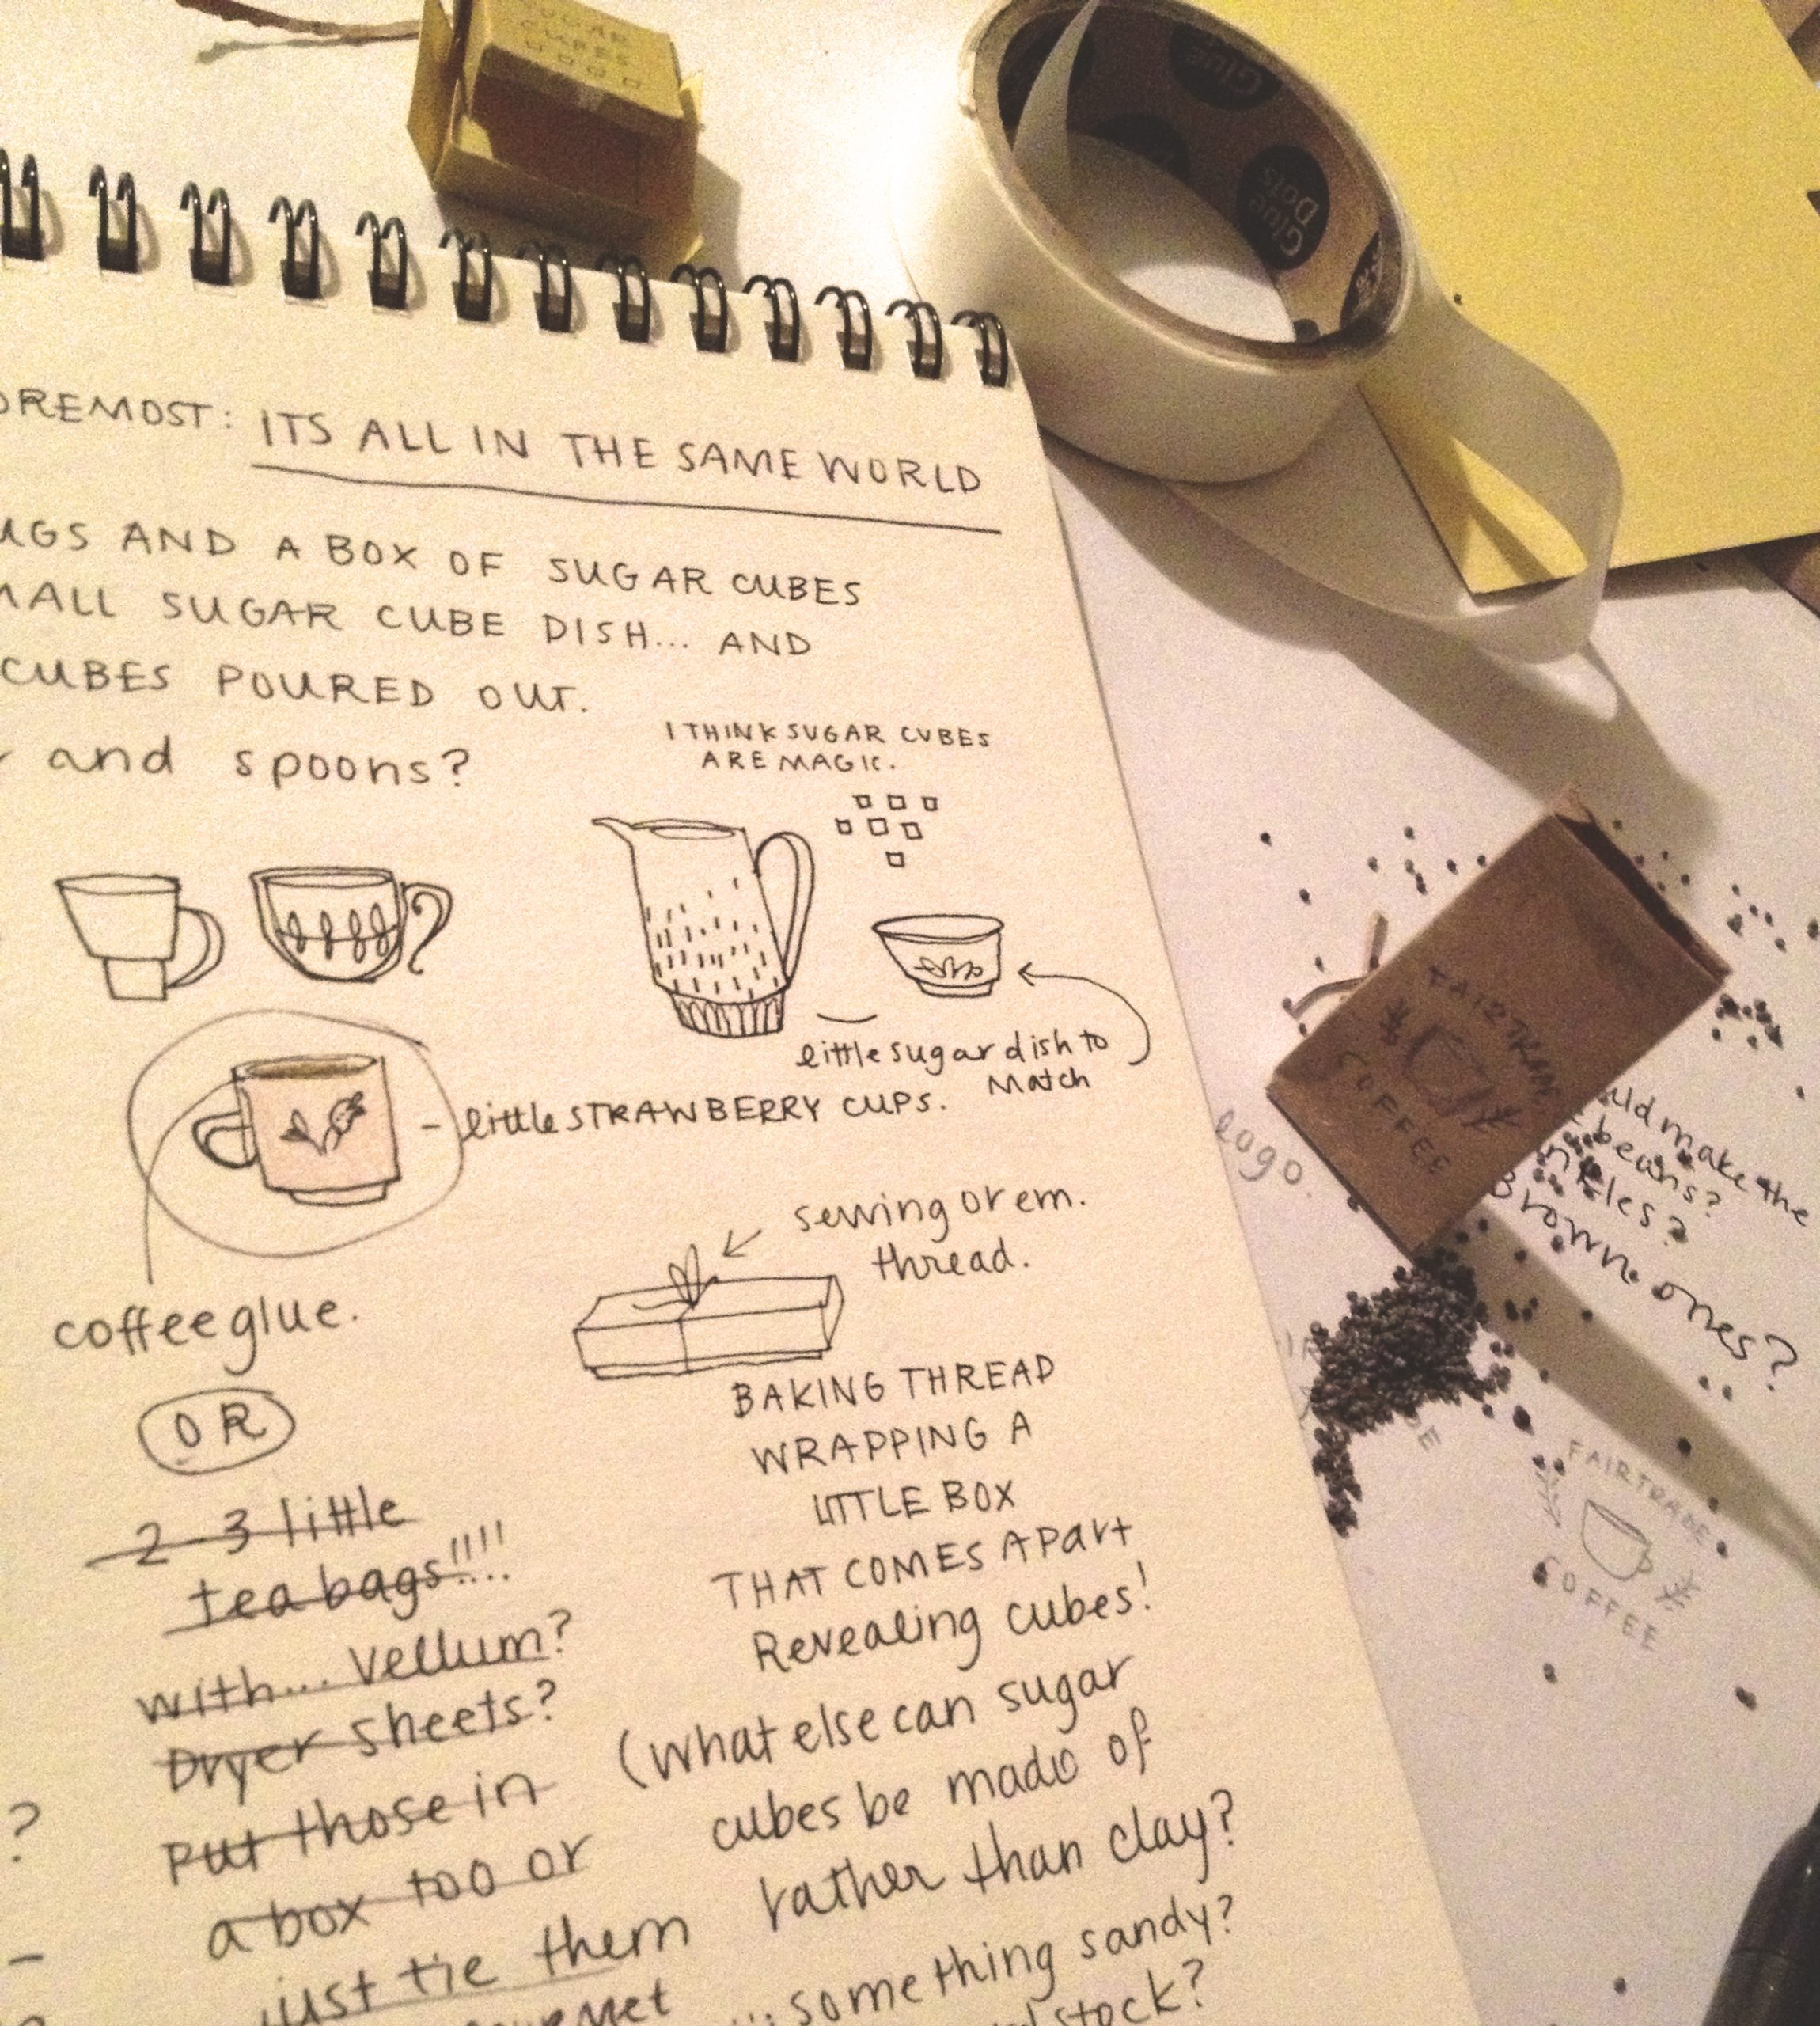 SUGAR
CUBES
Glue
Glue
Dots
OREMOST: ITS ALL IN THE SAME WORLD
UGS AND A BOX OF SUGAR CUBES
MALL SUGAR CUBE DISH... AND
CUBES POURED OUT.
and spoons?
I THINK SUGAR CUBES
ARE MAGIC.
little sugar dish to
Match
- little STRAWBERRY CUPS.
coffee glue.
OR
2-3 little
tea bags!!!!
with... vellum?
Dryer sheets?
Put those in
a box too or
just tie them
sewing or em.
thread.
BAKING THREAD
WRAPPING A
LITTLE BOX
THAT COMES APART
Revealing cubes!
(what else can sugar
cubes be made of
rather than clay?
...something sandy?
stock?
?
FAIRTRADE
COFFEE
logo.
uld make the
beans?
Brown ones?
FAIRTRADE
COFFEE